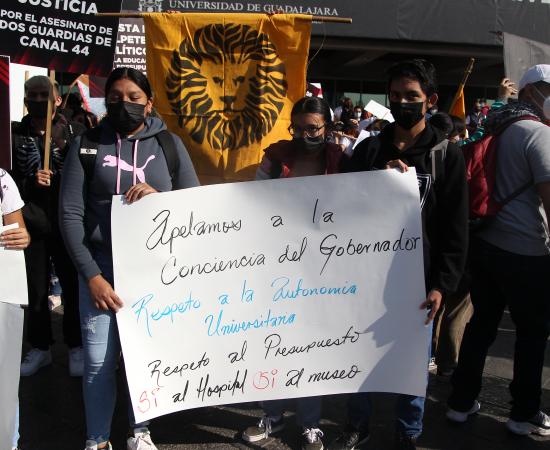 UNIVERSIDAD DE GUADALAJARA
JUSTICIA
POR EL ASESINATO DE
DOS GUARDIAS DE
CANAL 44
Apelamos a la
Conciencia del Gobernador
Respeto a la Autonomia
Universitaria
Respeto al Presupuesto
Si al Hospital Si al museo